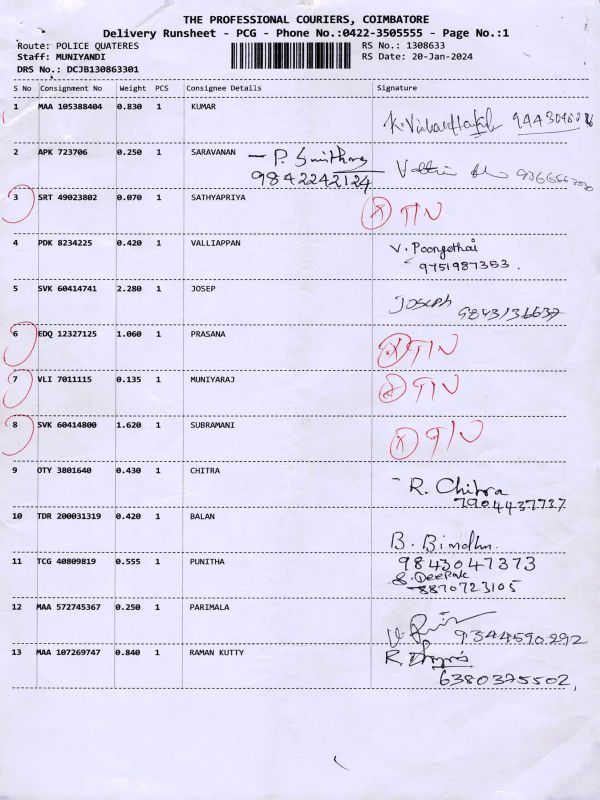 THE PROFESSIONAL COURIERS, COIMBATORE
Delivery Runsheet - PCG - Phone No.:0422-3505555 - Page No.:1
Route: POLICE QUATERES RS No.: 1308633
Staff: MUNIYANDI RS Date: 20-Jan-2024
DRS No.: DCJB130863301
S No Consignment No Weight PCS Consignee Details Signature
1 MAA 105388404 0.830 1 KUMAR
2 APK 723706 0.250 1 SARAVANAN
9842242124
3 SRT 49023802 0.070 1 SATHYAPRIYA
4 PDK 8234225 0.420 1 VALLIAPPAN V. Poongothai
9751987353.
5 SVK 60414741 2.280 1 JOSEP JOSEPH
6 EDQ 12327125 1.060 1 PRASANA
7 VLI 7011115 0.135 1 MUNIYARAJ
8 SVK 60414800 1.620 1 SUBRAMANI
9 OTY 3801640 0.430 1 CHITRA R. Chitra
7904437737
10 TDR 200031319 0.420 1 BALAN B. Bindhu.
9843047373
11 TCG 40809819 0.555 1 PUNITHA S. Deepak
8870723105
12 MAA 572745367 0.250 1 PARIMALA
9344590292
13 MAA 107269747 0.840 1 RAMAN KUTTY
6380375502,